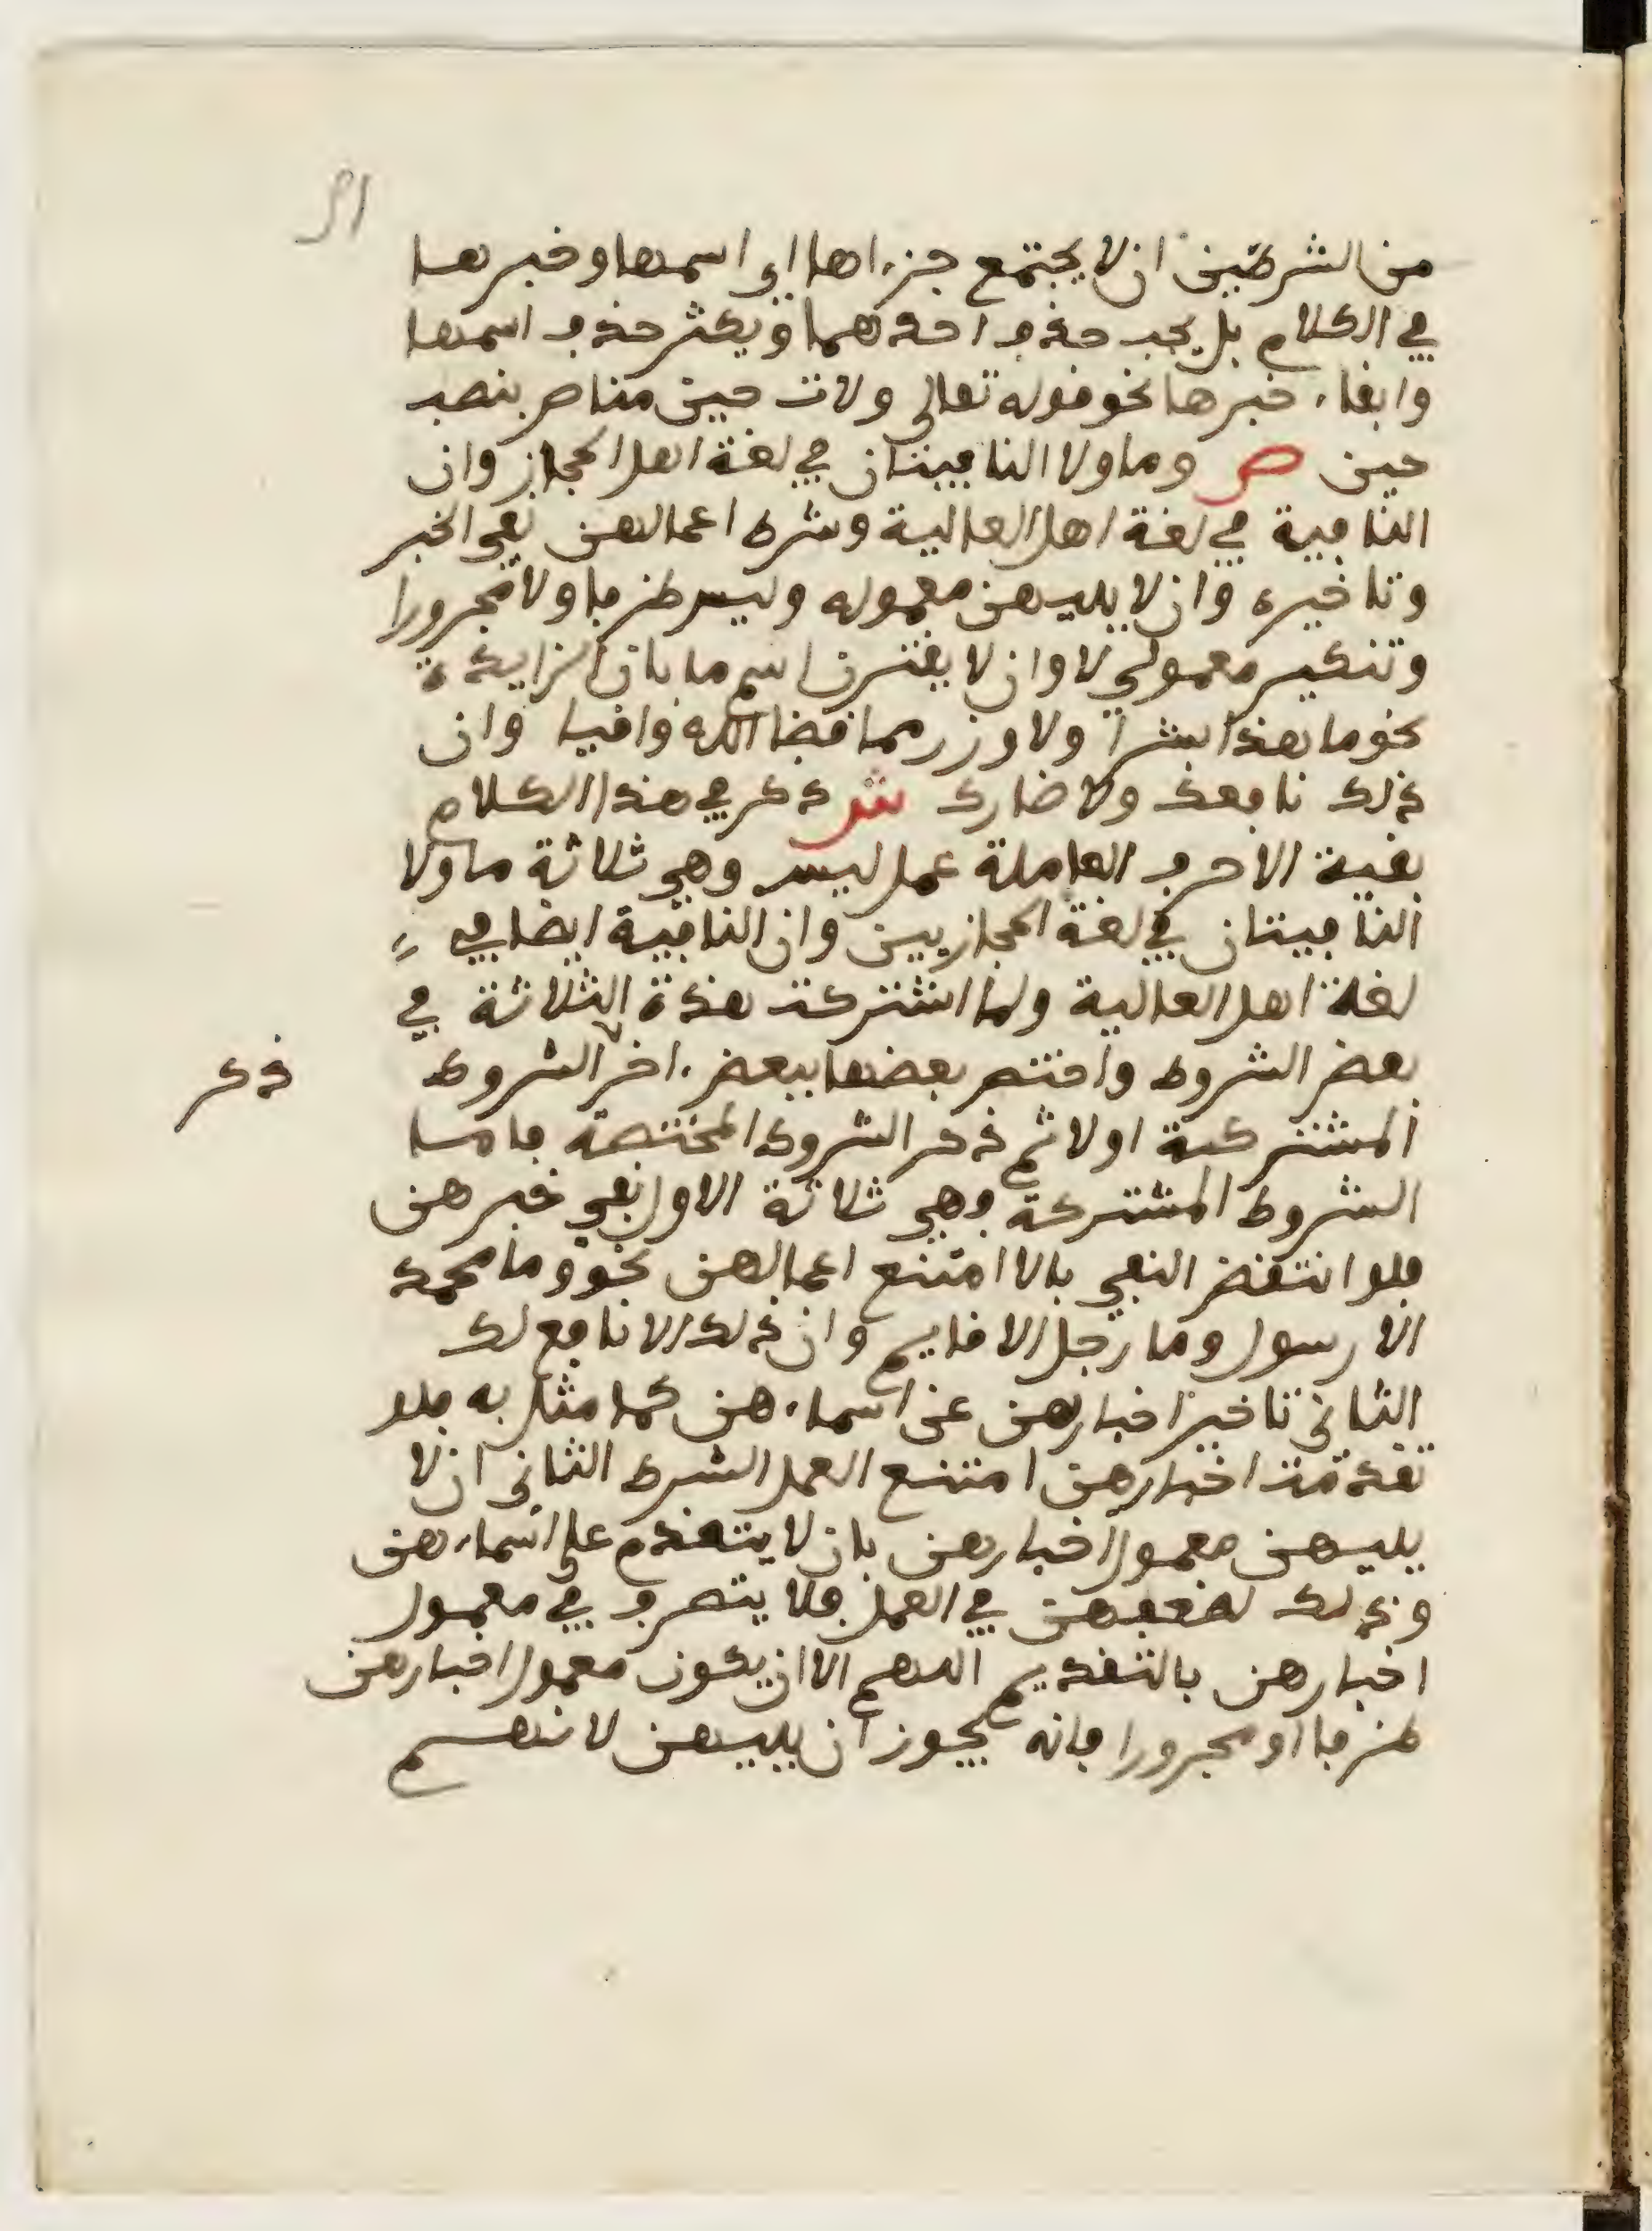 من الشرطين ان لا يجتمع جزءاها اي اسمها وخبرها
في الكلام بل يجب حذف احدهما ويكثر حذف اسمها
وابقاء خبرها نحو قوله تعالى ولات حين مناص بنصب
حين ص وما ولا النافيتان في لغة اهل الحجاز وان
النافية في لغة اهل العالية وشرط اعمالهن نفي الخبر
وتاخيره وان لا يليهن معموله وليس ظرفا ولا مجرورا
وتنكير معمولي لا وان لا يقترن اسم ما بان الزايدة
نحو ما هذا بشرا ولا وزر مما قضا الله واقيا وان
ذلك نافعك ولا ضارك ش ذكر في هذا الكلام
بقية الاحرف العاملة عمل ليس وهي ثلاثة ما ولا
النافيتان في لغة الحجازيين وان النافية ايضا في
لغة اهل العالية ولما اشتركت هذه الثلاثة في
بعض الشروط واختص بعضها ببعض اخر الشروط
ذكر
المشتركة اولا ثم ذكر الشروط المختصة فامسا
الشروط المشتركة فهي ثلاثة الاول نفي خبرهن
فلو انتقض النفي بالا امتنع اعمالهن نحو وما محمد
الا رسول وما رجل الا قايم وان ذلك الا نافع لك
الثاني تاخير اخبارهن عن اسماءهن كما مثل به فلو
تقدمت اخبارهن امتنع العمل الشرط الثاني ان لا
يليهن معمول اخبارهن بان لا يتقدم على اسماءهن
وذلك لضعفهن في العمل فلا يتصرف في معمول
اخبارهن بالتقديم اللهم الا ان يكون معمول اخبارهن
ظرفا او مجرورا فانه يجوز ان يليهن لانهم